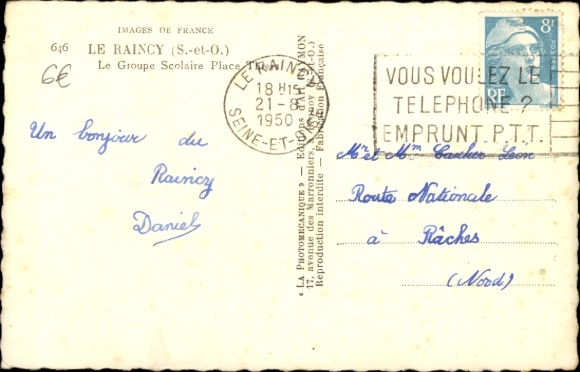 IMAGES DE FRANCE
646 LE RAINCY (S.-et-O.)
Le Groupe Scolaire Place Thiers
6€
Un bonjour du
Raincy
Daniel
LE RAINCY
18 H15
21-8
1950
SEINE-ET-OISE
« LA PHOTOMECANIQUE » — Editions RAYMON
17, avenue des Marronniers,
Reproduction interdite — Fabrication Française
8F
POSTES
RF
VOUS VOULEZ LE
TELEPHONE ?
EMPRUNT P.T.T.
Mr et Mm Léon
Route Nationale
à Râches
(Nord)